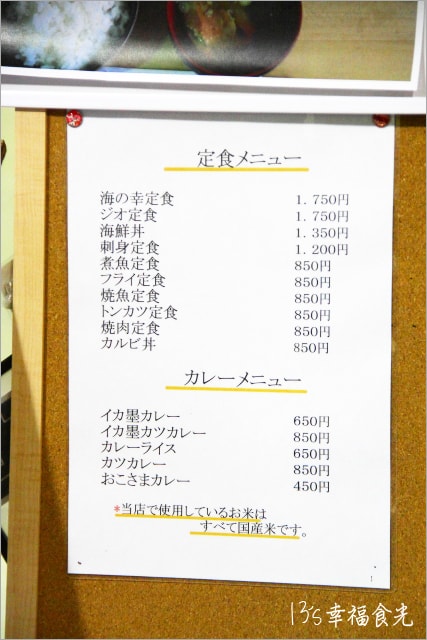 定食メニュー
海の幸定食 1.750円
ジオ定食 1.750円
海鮮丼 1.350円
刺身定食 1.200円
煮魚定食 850円
フライ定食 850円
焼魚定食 850円
トンカツ定食 850円
焼肉定食 850円
カルビ丼 850円
カレーメニュー
イカ墨カレー 650円
イカ墨カツカレー 850円
カレーライス 650円
カツカレー 850円
おこさまカレー 450円
*当店で使用しているお米は
すべて国産米です。
13's幸福食光